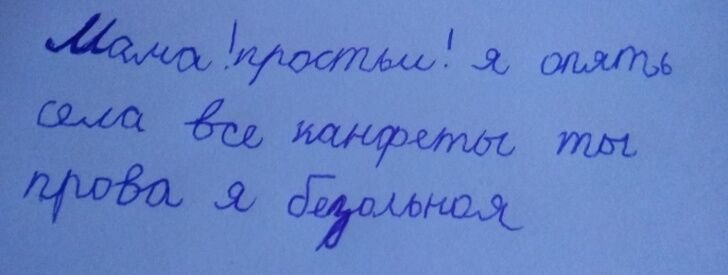 Мама! простьи! я опять
села все канфеты ты
права я безольная